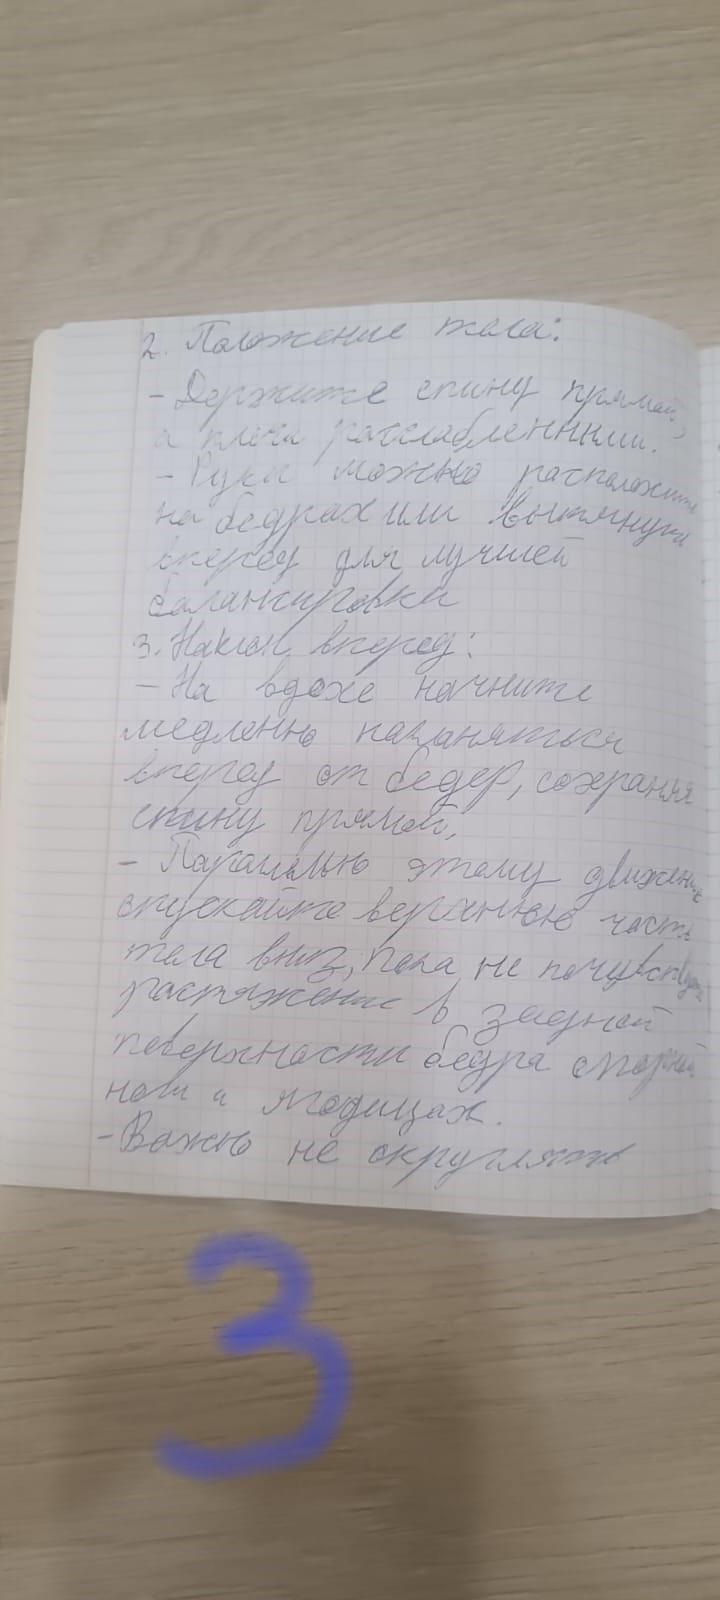 2. Положение тела:
- Держите спину прямой,
а плечи расслабленными.
- Руки можно расположить
на бедрах или вытянуть
вперед для лучшей
балансировки
3. Наклон вперед:
- На вдохе начните
медленно наклоняться
вперед от бедер, сохраняя
спину прямой,
- Паралельно этому движению
опускайте верхнюю часть
тела вниз, пока не почувствуете
растяжение в задней
поверхности бедра опорной
ноги и ягодицах.
- Важно не округлять
3